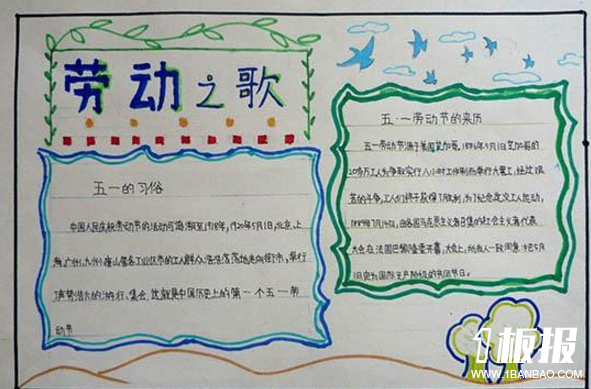 劳动之歌
五一的习俗
中国人民庆祝劳动节的活动可追溯至1918年，1920年5月1日，北京、上
海、广州、九州、唐山各工业区市的工人群众浩浩荡荡地走向街市，举行
了声势浩大的游行、集会，这就是中国历史上的第一个五一劳
动节
五·一劳动节的来历
五一劳动节源于美国芝加哥，1886年5月1日芝加哥的
20多万工人为争取实行八小时工作制而举行大罢工，经过艰
苦的斗争，工人们终于获得了胜利，为了纪念这次工人运动，
1889年7月14日，由各国马克思主义者召集的社会主义者代表
大会在法国巴黎隆重开幕，大会上，所有人一致同意：把5月
1日定为国际无产阶级的共同节日。
1板报
WWW.1BANBAO.COM